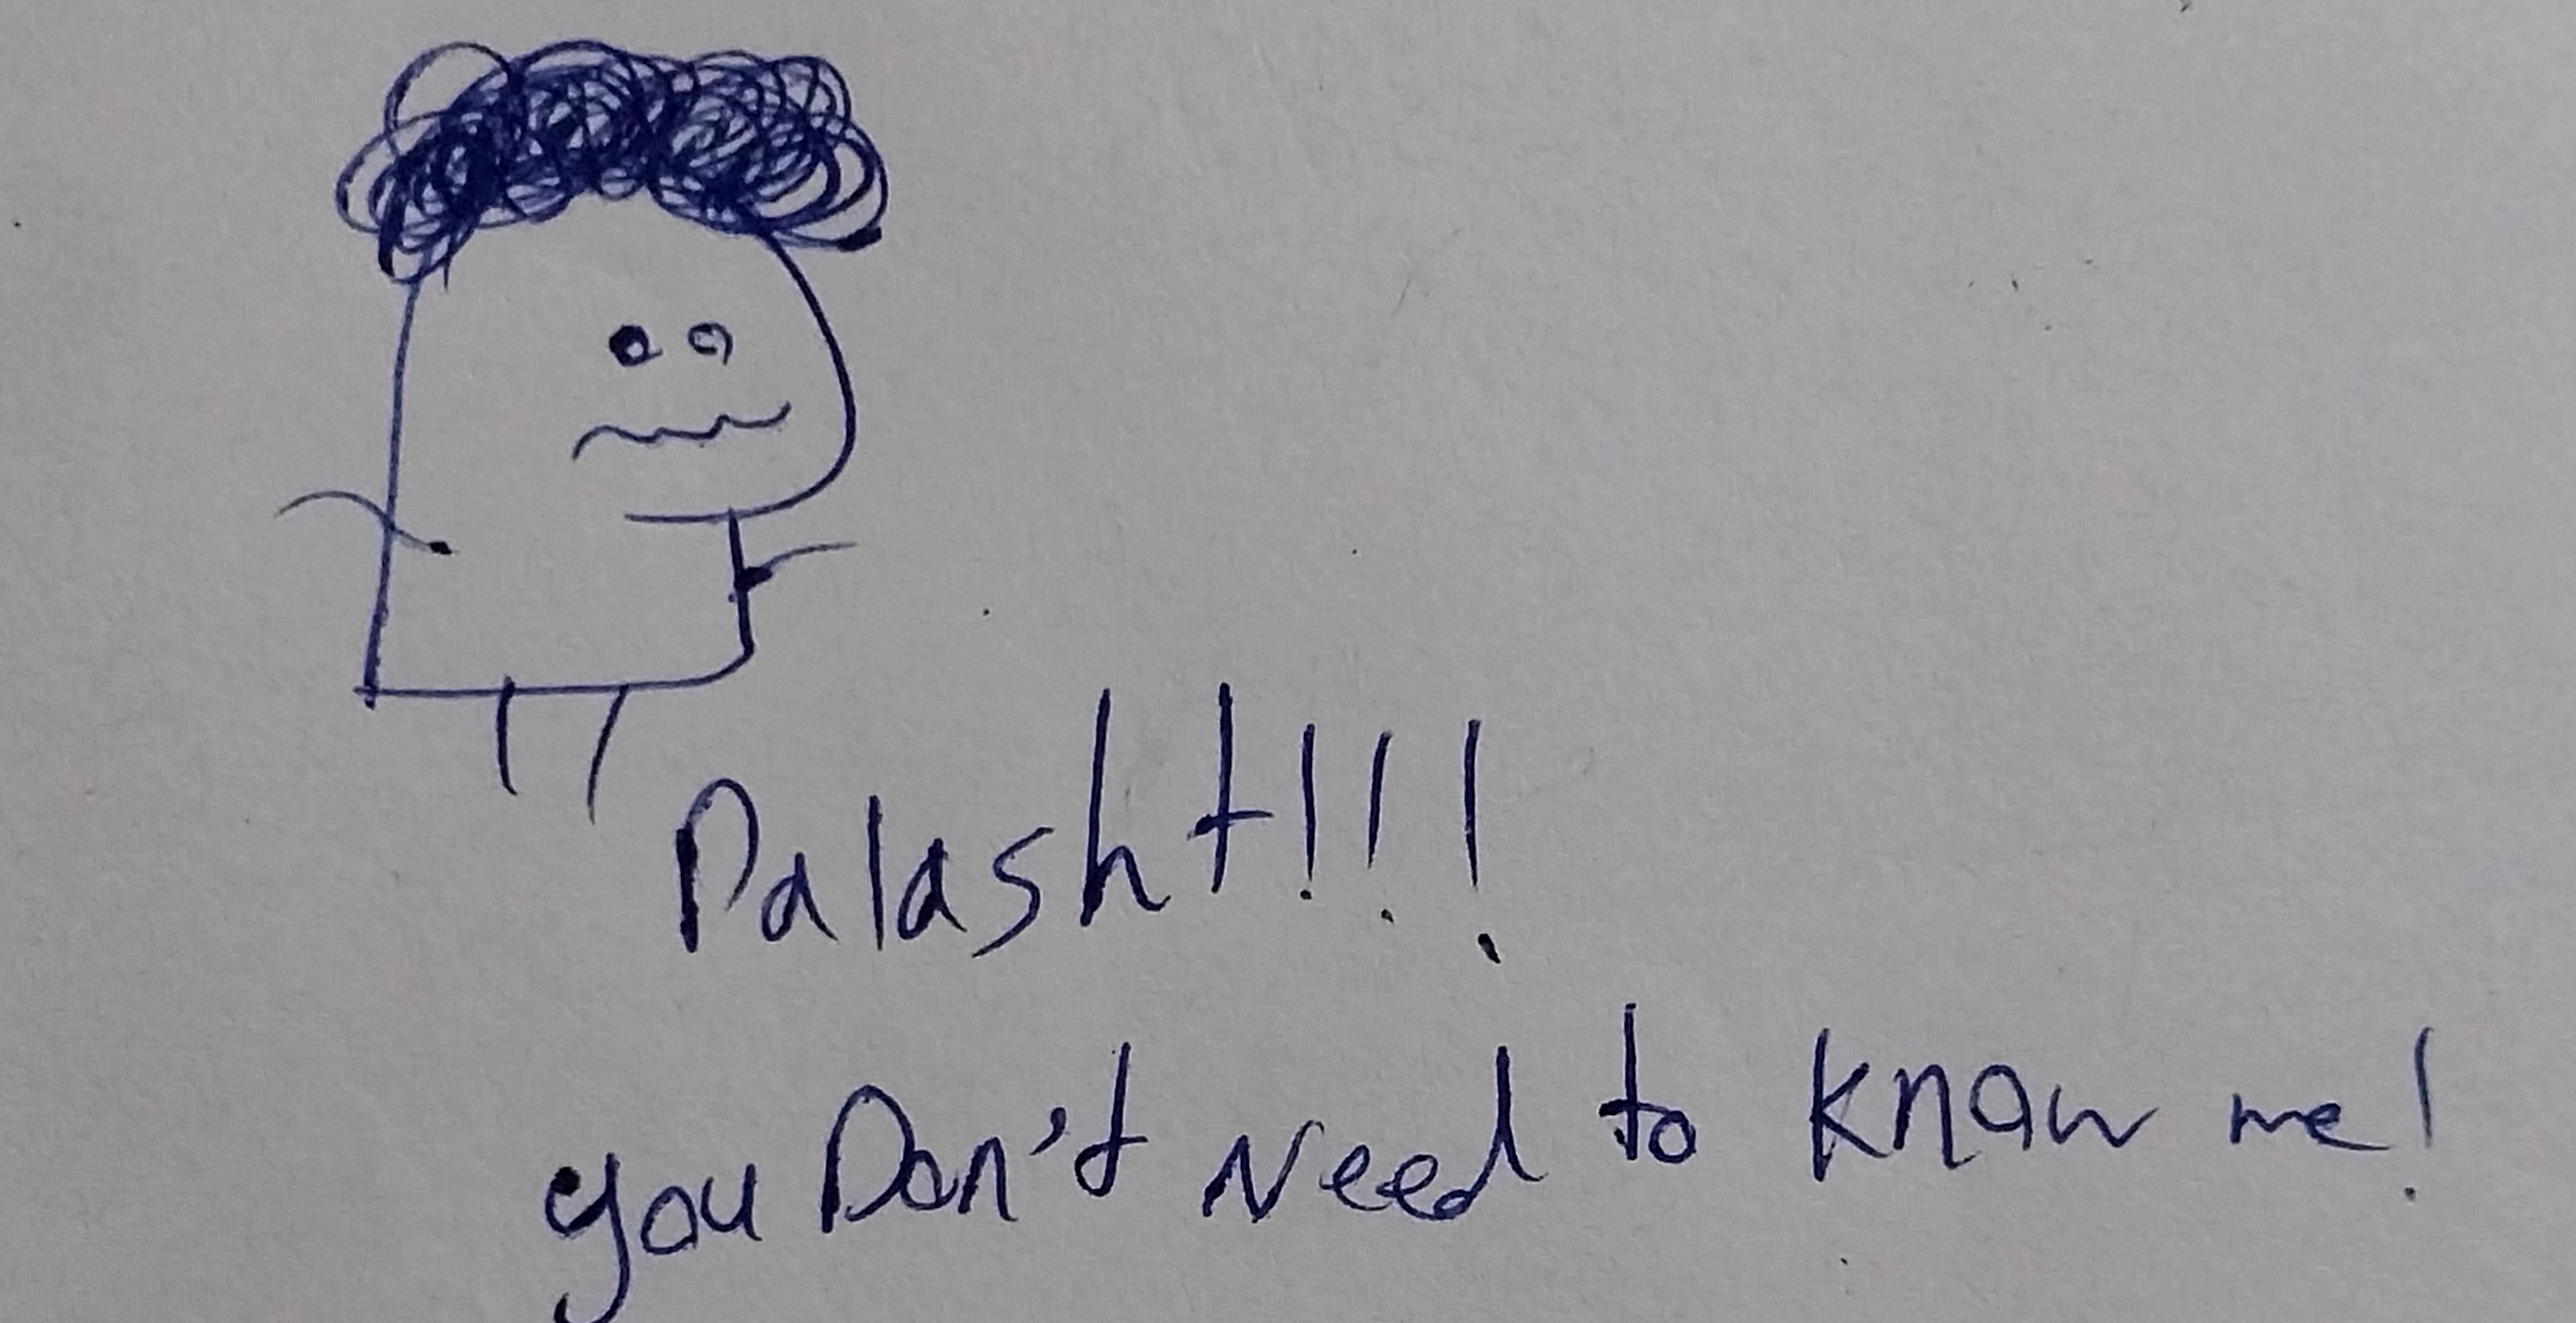 Palasht!!!
you Don't Need to know me!